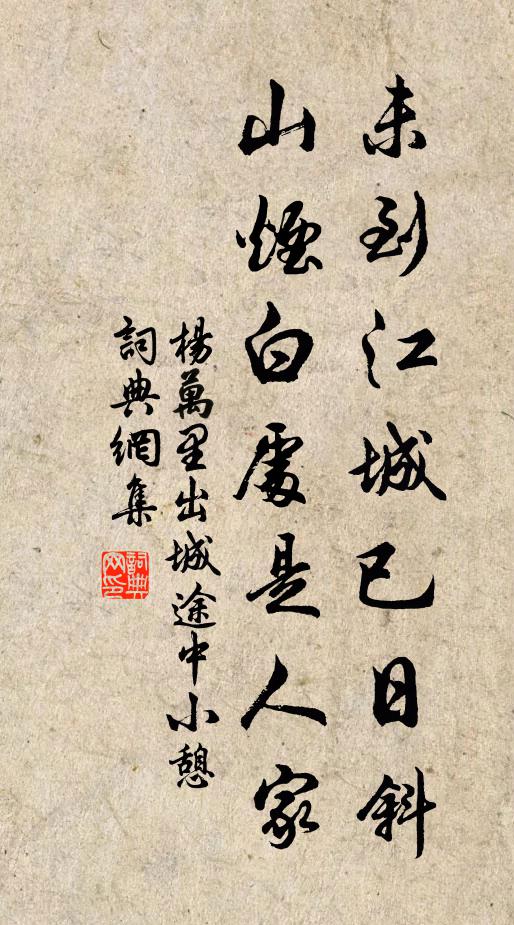 未到江城已日斜
山煙白處是人家
楊萬里出城途中小憩
詞典網集
詞典网印